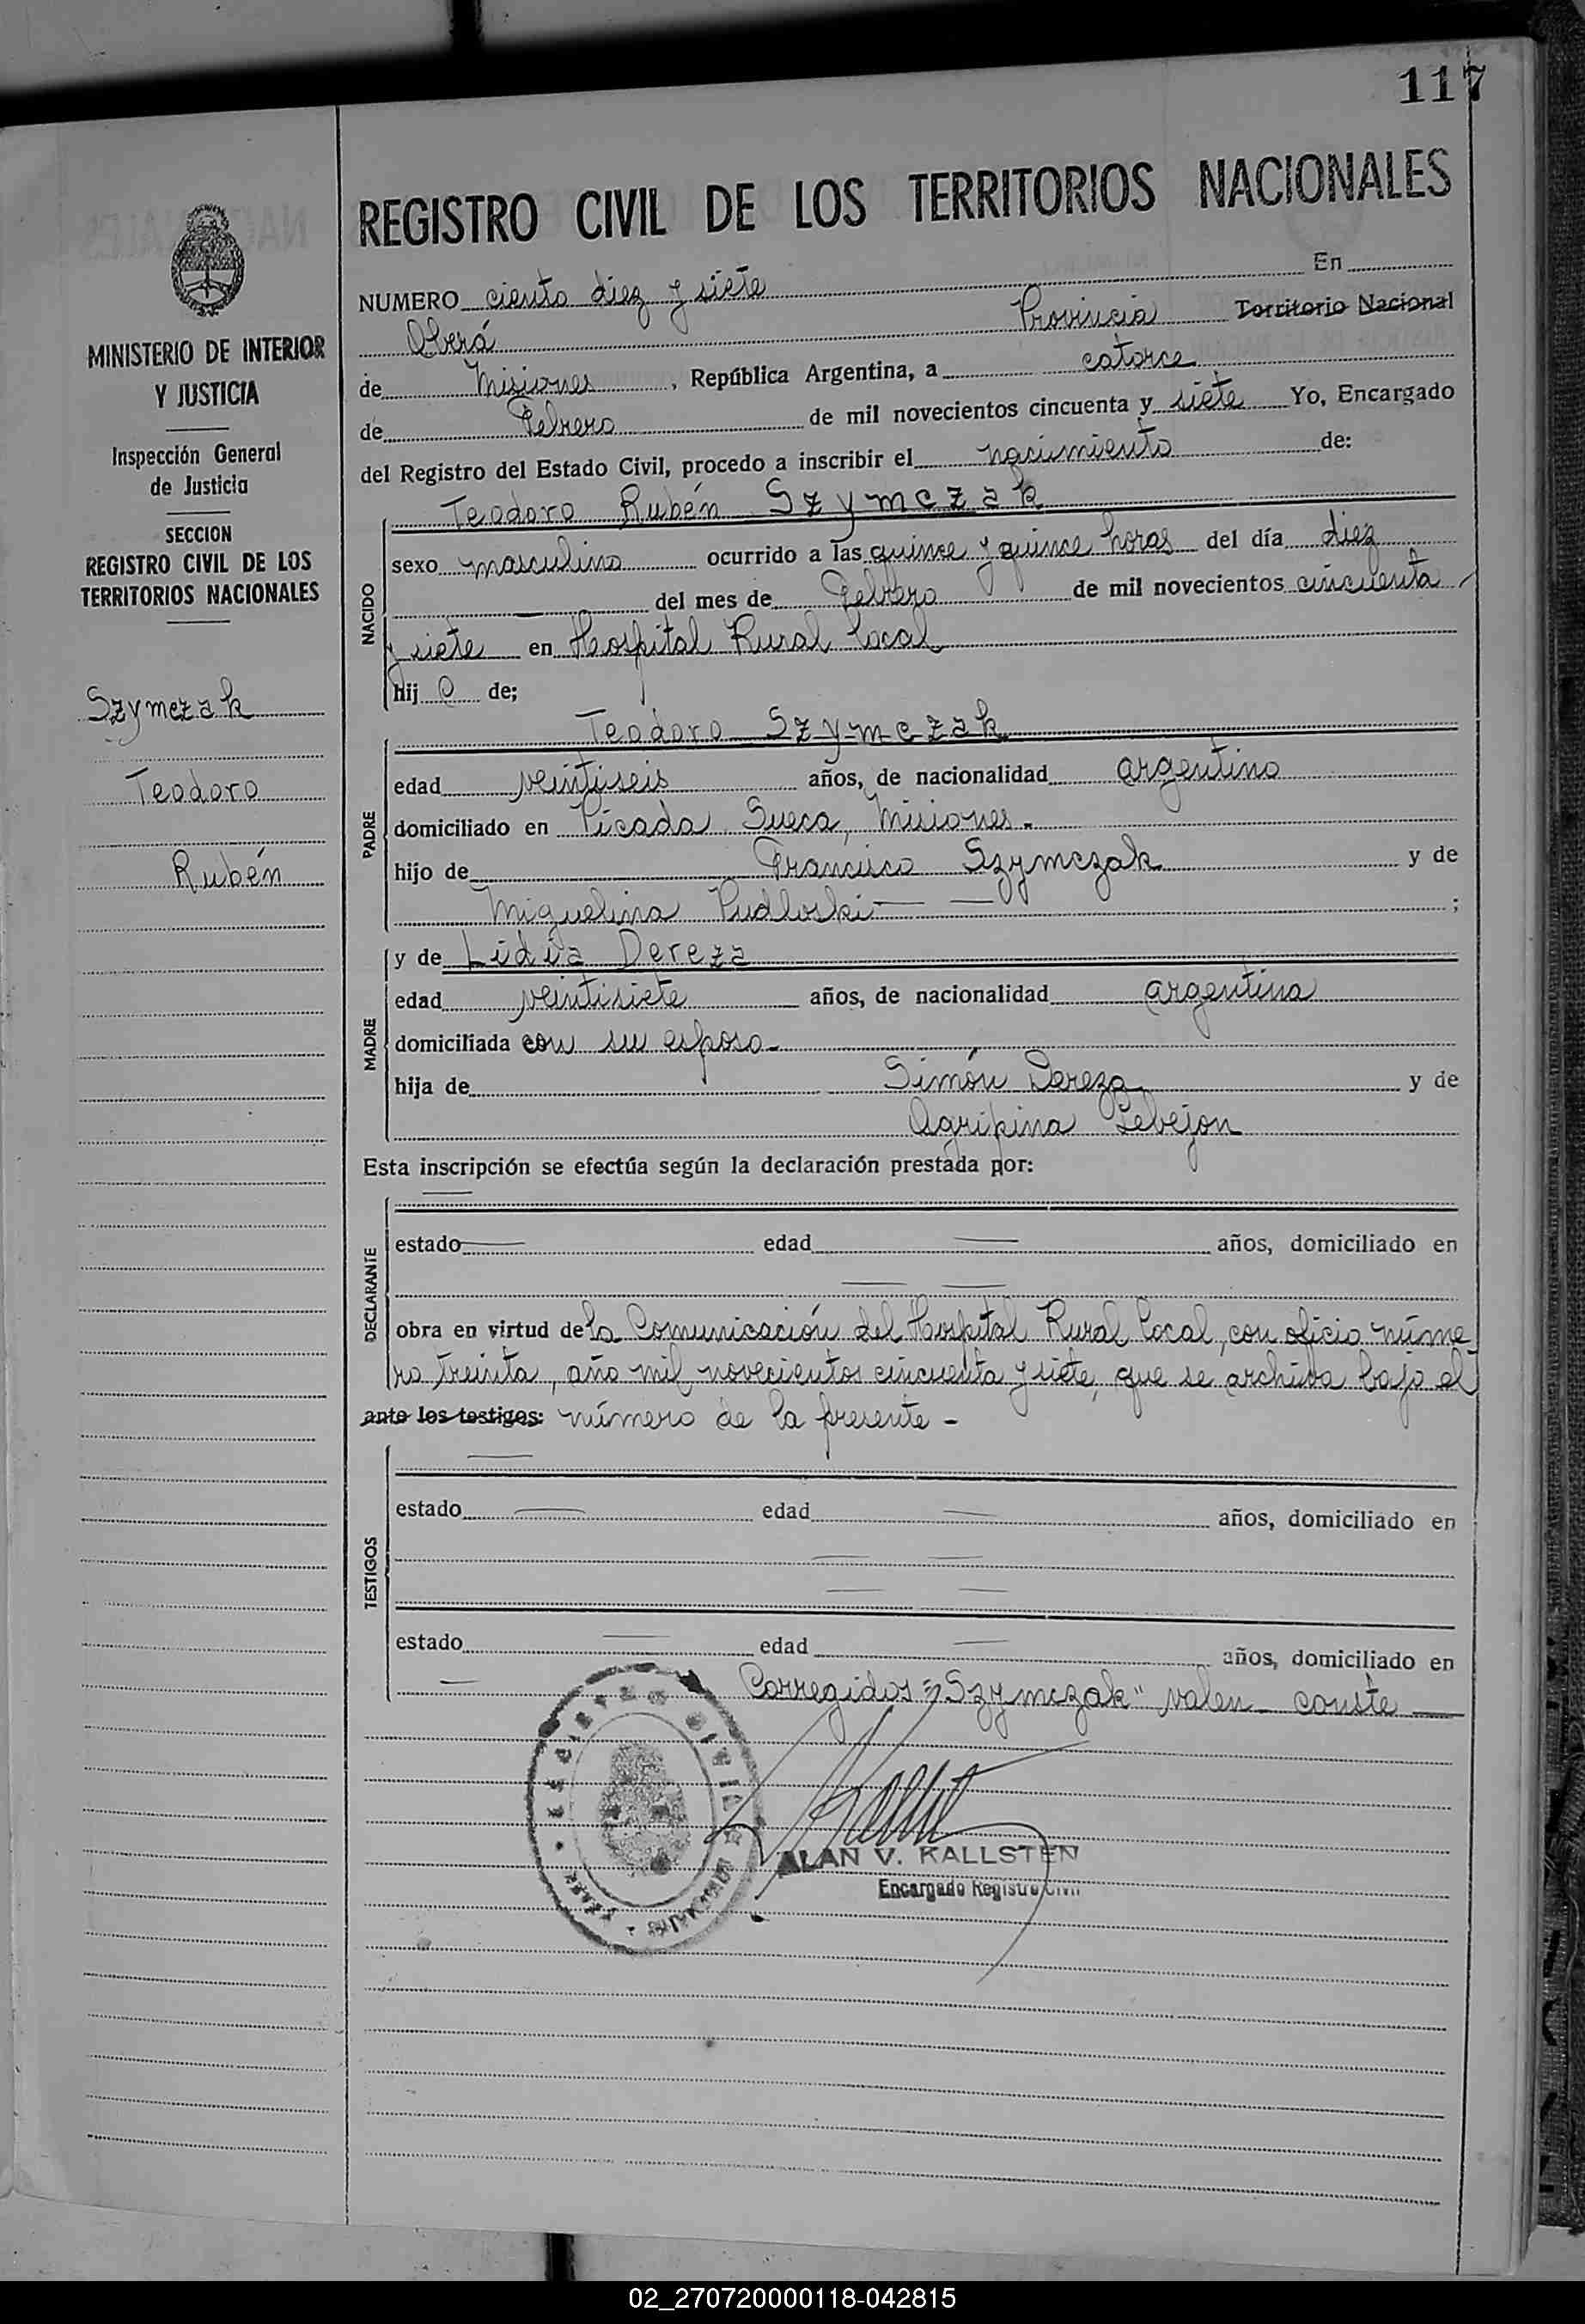 117
REGISTRO CIVIL DE LOS TERRITORIOS NACIONALES
MINISTERIO DE INTERIOR
Y JUSTICIA
Inspección General
de Justicia
SECCION
REGISTRO CIVIL DE LOS
TERRITORIOS NACIONALES
Szymczak
Teodoro
Rubén
NUMERO ciento diez y siete En
Oberá Provincia Territorio Nacional
de Misiones, República Argentina, a catorce
de Febrero de mil novecientos cincuenta y siete Yo, Encargado
del Registro del Estado Civil, procedo a inscribir el nacimiento de:
NACIDO
Teodoro Rubén Szymczak
sexo masculino ocurrido a las quince y quince horas del día diez
— del mes de Febrero de mil novecientos cincuenta
y siete en Hospital Rural Local
hijo de;
PADRE
Teodoro Szymczak
edad veintiseis años, de nacionalidad argentino
domiciliado en Picada Sueca, Misiones.
hijo de Francisco Szymczak y de
Miguelina Pudloski — — ;
MADRE
y de Lidia Dereza
edad veintisiete años, de nacionalidad argentina
domiciliada con su esposo-
hija de Simón Dereza y de
Agripina
Esta inscripción se efectúa según la declaración prestada por:
DECLARANTE
—
estado — edad — años, domiciliado en
— —
obra en virtud de la Comunicación del Hospital Rural Local, con oficio núme
ro treinta, año mil novecientos cincuenta y siete, que se archiva bajo el
ante los testigos: número de la presente -
TESTIGOS
—
estado — edad — años, domiciliado en
— —
— —
estado — edad — años, domiciliado en
— Corregidos = "Szymczak" valen - conste —
ALAN V. KALLSTEN
Encargado Registro Civil
02_270720000118-042815